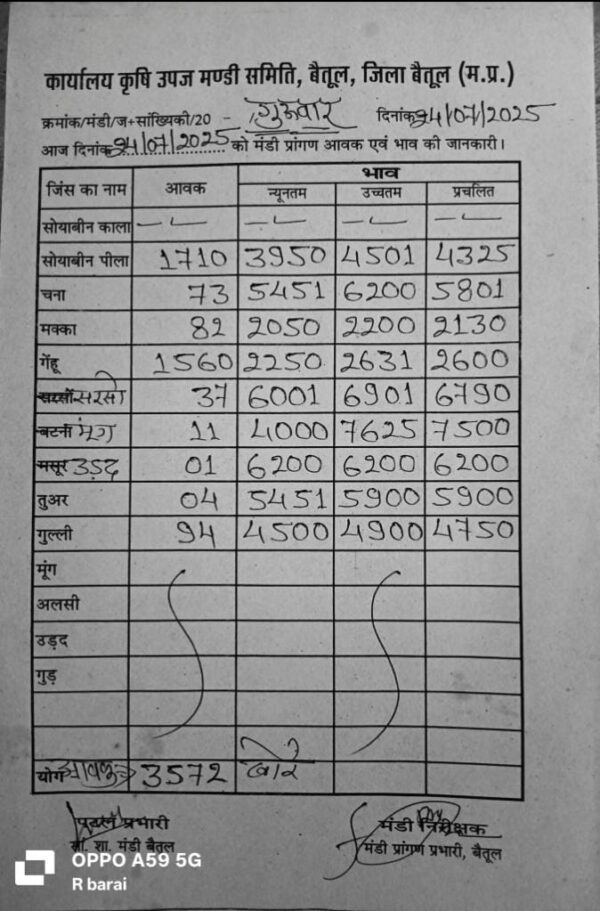 कार्यालय कृषि उपज मण्डी समिति, बैतूल, जिला बैतूल (म.प्र.)
क्रमांक/मंडी/ज+सांख्यिकी/20 - गुरूवार दिनांक 24/07/2025
आज दिनांक 24/07/2025 को मंडी प्रांगण आवक एवं भाव की जानकारी।
जिंस का नाम आवक भाव
न्यूनतम उच्चतम प्रचलित
सोयाबीन काला -- -- -- --
सोयाबीन पीला 1710 3950 4501 4325
चना 73 5451 6200 5801
मक्का 82 2050 2200 2130
गेंहू 1560 2250 2631 2600
सरसों सरसो 37 6001 6901 6790
बटना मूंग 11 4000 7625 7500
मसूर उड़द 01 6200 6200 6200
तुअर 04 5451 5900 5900
गुल्ली 94 4500 4900 4750
मूंग
अलसी
उड़द
गुड़
योग आवक 3572 बोरे
प्रभारी मंडी निरीक्षक
सां. शा. मंडी बैतूल मंडी प्रांगण प्रभारी, बैतूल
OPPO A59 5G
R barai